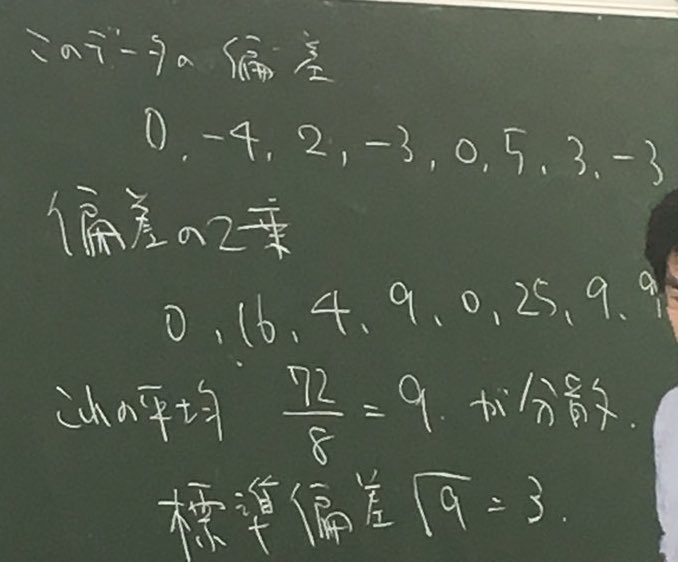 このデータの偏差
0, -4, 2, -3, 0, 5, 3, -3
偏差の2乗
0, 16, 4, 9, 0, 25, 9, 9
これの平均 72/8 = 9. が分散.
標準偏差 √9 = 3.